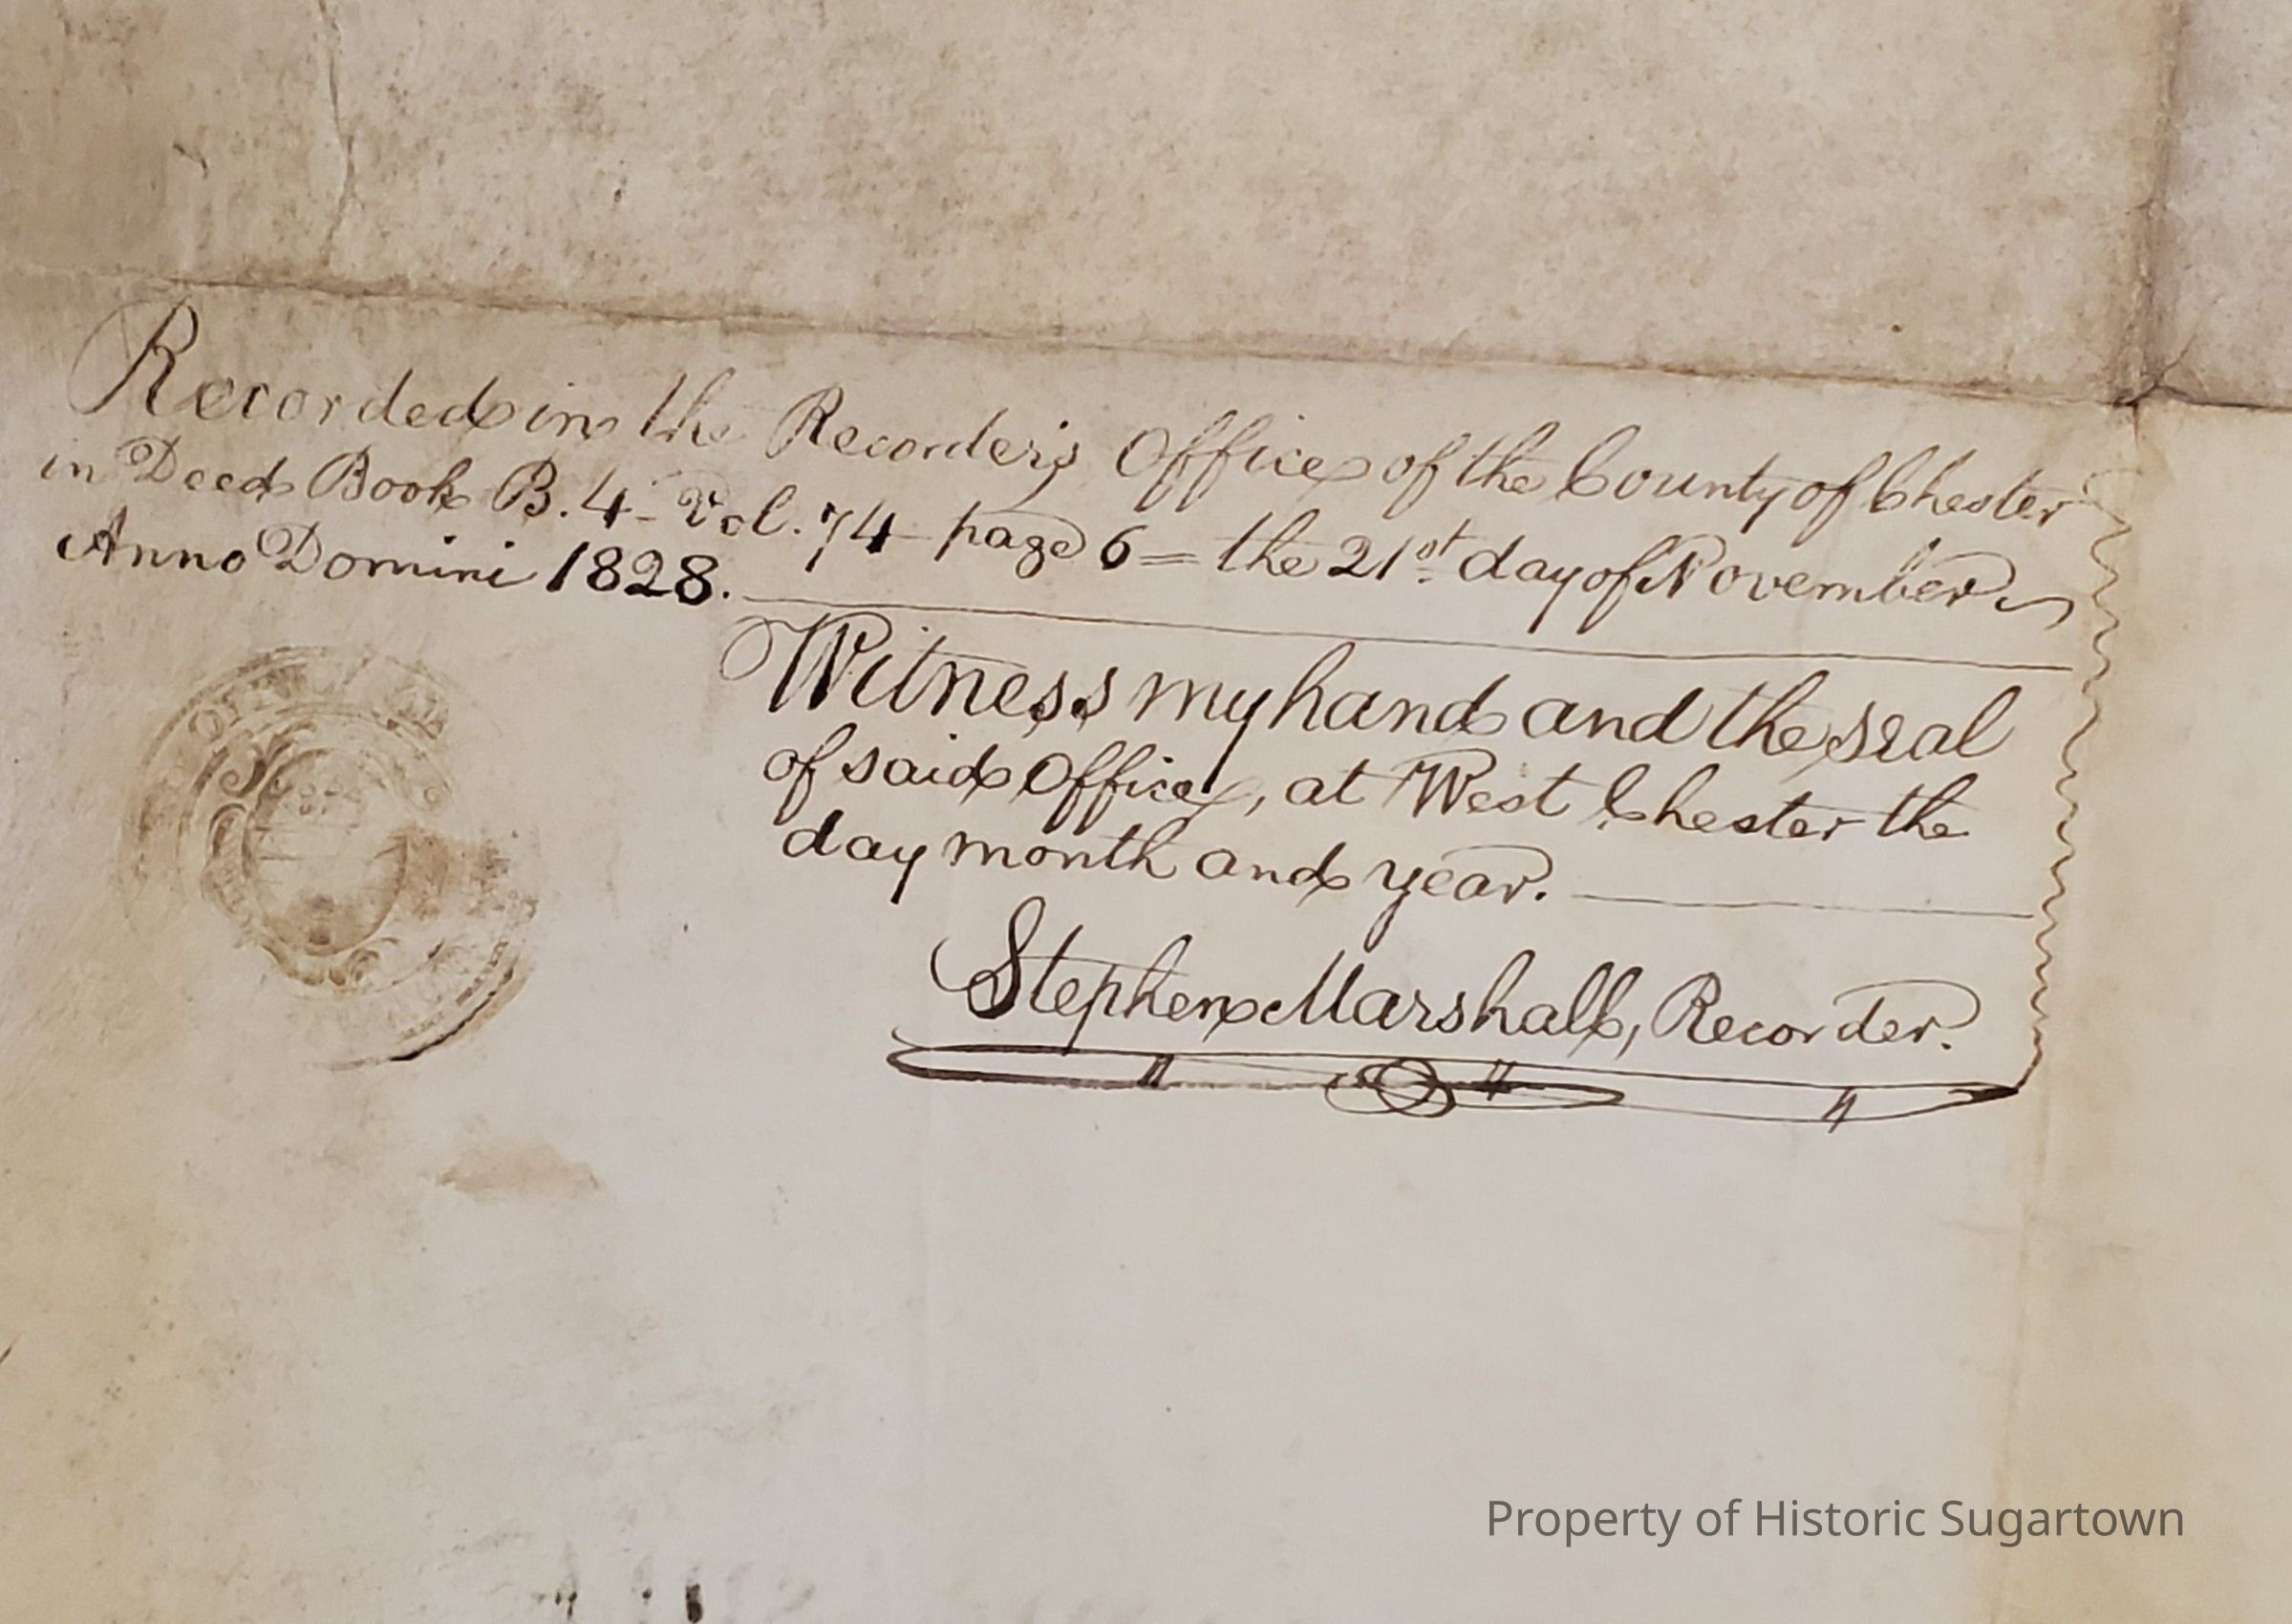 Recorded in the Recorder's Office of the County of Chester
in Deed Book B. 4 - Vol. 74 - page 6 = the 21st day of November
Anno Domini 1828.
Witness my hand and the seal
of said Office, at West Chester the
day month and year.
Stephen Marshall, Recorder.
Property of Historic Sugartown